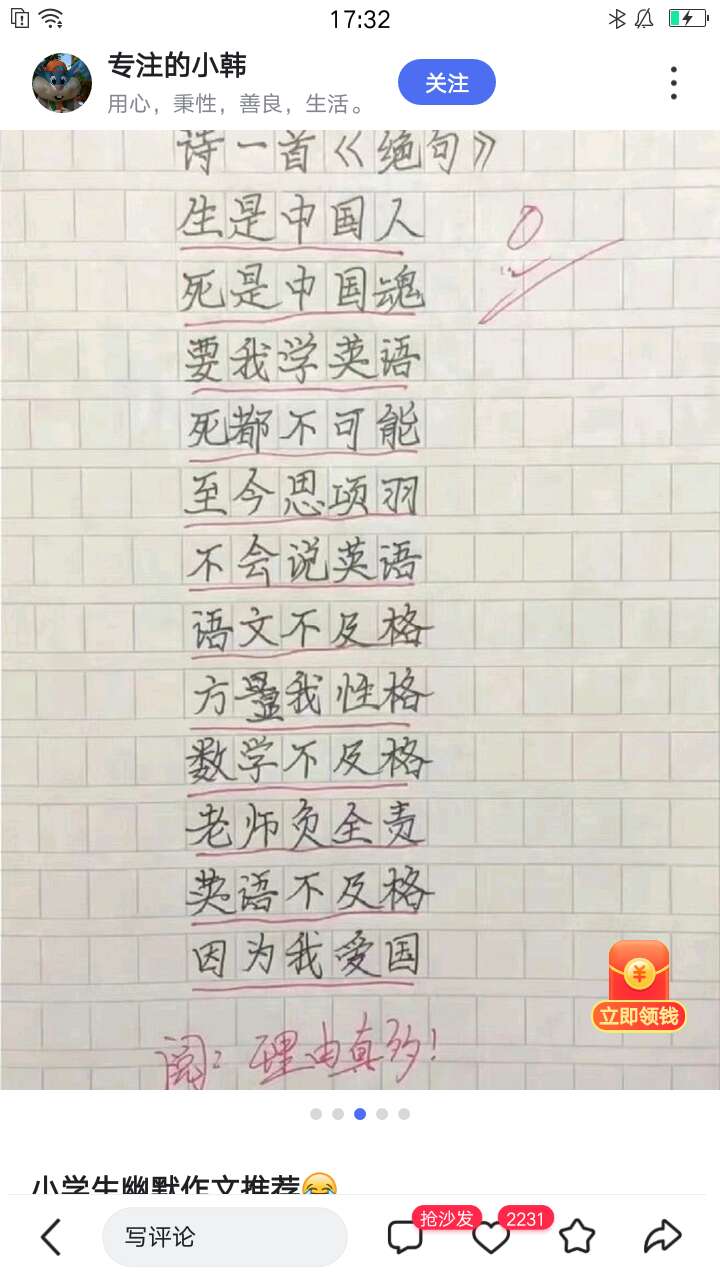 17:32
专注的小韩
用心，秉性，善良，生活。
关注
诗一首《绝句》
生是中国人
死是中国魂
要我学英语
死都不可能
至今思项羽
不会说英语
语文不及格
方显我性格
数学不及格
老师负全责
英语不及格
因为我爱国
0
阅：理由真多！
立即领钱
小学生幽默作文推荐😂
写评论
抢沙发
2231